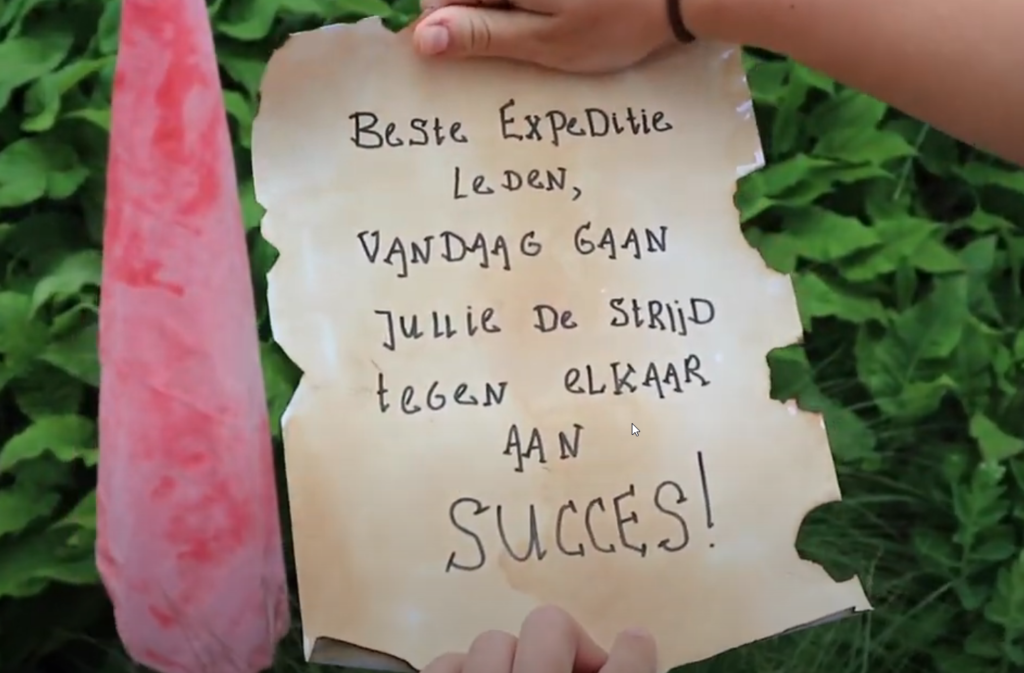 Beste Expeditie
Leden,
VANDAAG GAAN
Jullie De Strijd
tegen elkaar
AAN
SUCCES!